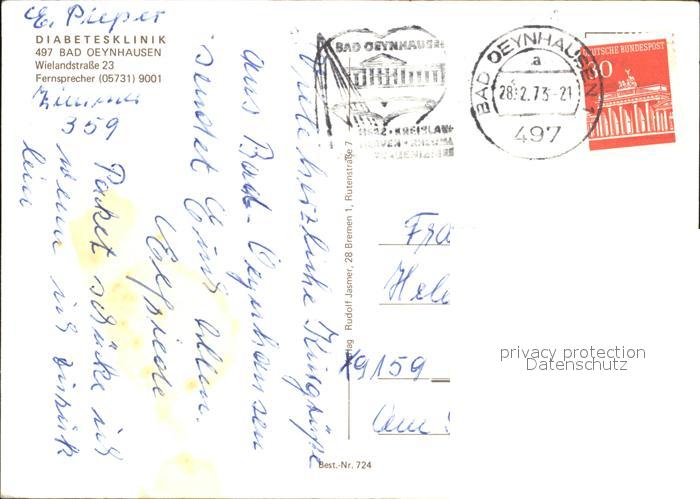 E. Pieper
DIABETESKLINIK
497 BAD OEYNHAUSEN
Wielandstraße 23
Fernsprecher (05731) 9001
Zimmer
359
Viele herzliche Kurgrüße
aus Bad-Oeynhausen
sendet Euch Allen.
Elfriede
Paket schicke ich
wenn ich zurück
bin
Rudolf Jasmer, 28 Bremen 1, Rutenstraße 7
Best.-Nr. 724
BAD OEYNHAUSEN
HERZ • KREISLAUF
BAD OEYNHAUSEN 1
a
28.-2.73-21
497
DEUTSCHE BUNDESPOST
30
Fra
Hele
9159
Am
privacy protection
Datenschutz